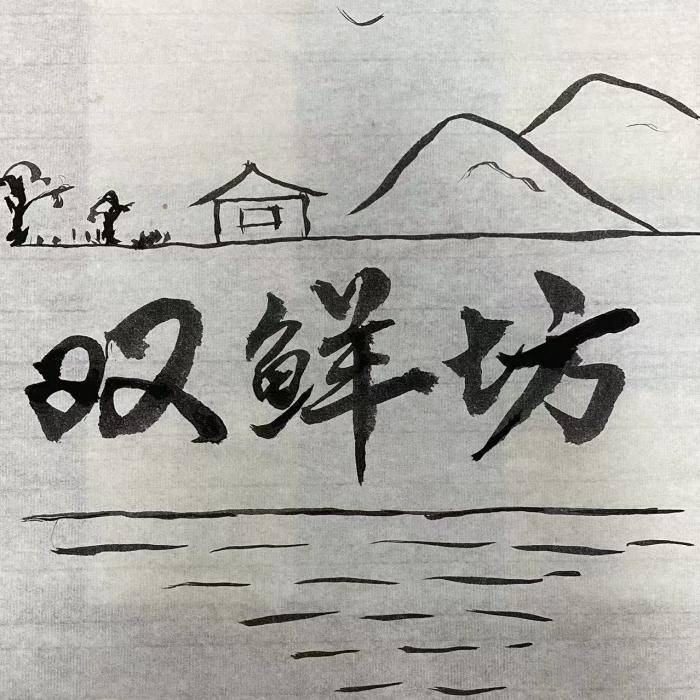 双鲜坊